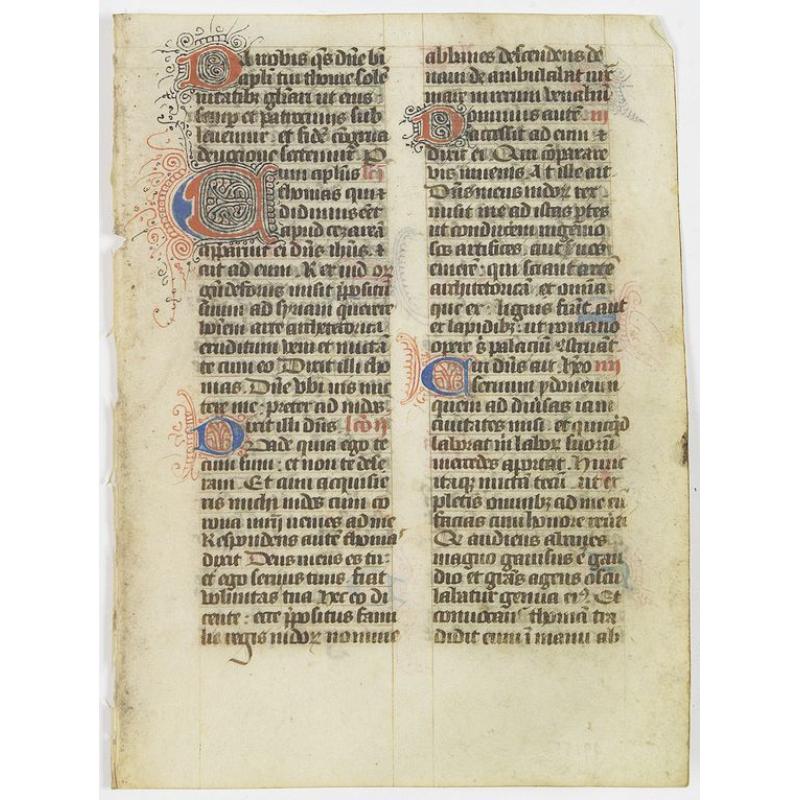 Da nobis qs dne bti
apli tui thome solē
nitatibȝ glari ut eius
semp et patrociniis sub
leuemur et fidē cōgrua
deuocione sectemur. P
Cum aplus lc̄i
thomas qui ⁊
didimus eēt
apud cezareā
apparuit ei dns ihus ⁊
ait ad eum. Rex ind oꝝ
gūdeforus misit ppositū
suum ad syriam querere
hoīem arte architectorica
eruditum veni et mittā
te cum eo Dixit illi tho
mas. Dne ubi uis mit
te me: preter ad indos
Dixit illi dns lcō ii
Vade quia ego te
cum sum: et non te dese
ram. Et cum acquisie
ris michi indos cum co
rona mrīi uenies ad me
Respondens autē thomas
dixit Deus meus es tu:
et ego seruus tuus fiat
voluntas tua Hec eo di
cente: ecce ppositus fami
lie regis indoꝝ nomine
abbanes descendens de
naui de ambulabat iux
mare in rerum venaliū
Dominus autē iii
accessit ad eum ⁊
dixit ei Quid cōparare
vis iuuenis At ille ait
Dns meus indoꝝ rex
misit me ad istas ptes
ut conducerem ingenio
sos artifices aut
emere: qui sciant arte
architectorica et omīa
que ex lignis fiūt aut
et lapidibȝ: ut romano
opere s palacium cōstruāt
Cui dns ait. Hēo iiii
seruum ydoneum
quem ad diuersas iam
ciuitates misi et quicqd
laborat in labore suorū
mercedes aportat Hunc
itaqȝ mittā tecū ut ex
pletis omnibȝ ad me eū
facias cum honore reuti
Qd audiens abbanes
magno gauisus ē gau
dio et gras agens oscu
labatur genua eiꝰ Et
conuocans thomā tra
didit eum ī manu ab